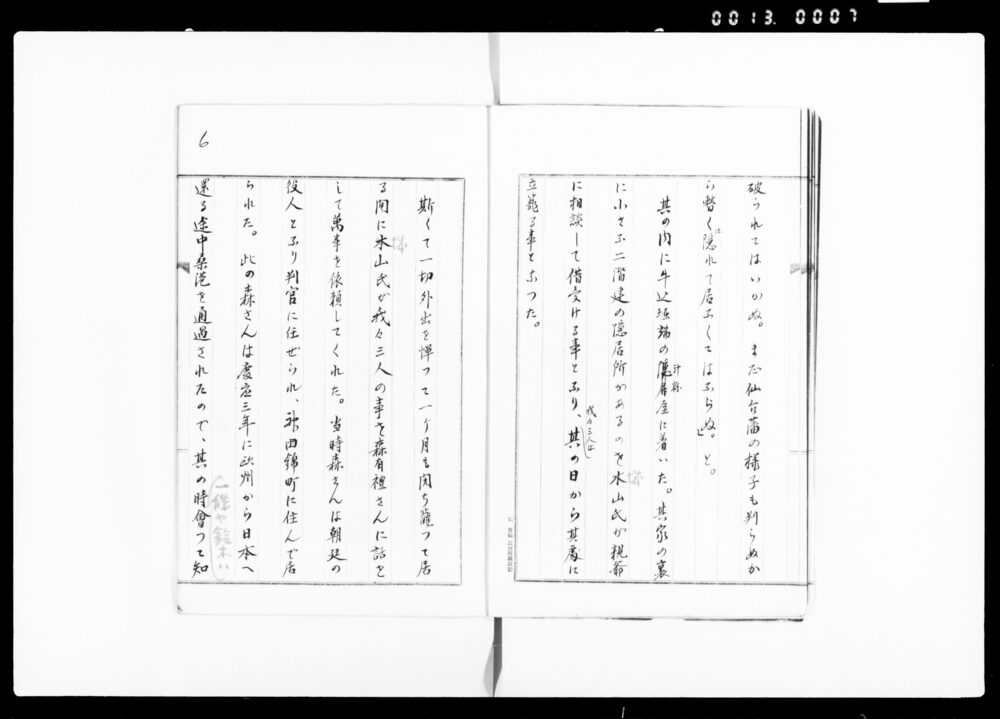 0013. 0007
破られてはいかぬ。まだ仙台藩の様子も判らぬか
ら暫く隠れて居なくてはならぬ。と。
其の内に牛込堀端の隠居屋に着いた。其家の裏
に小さな二階建の隠居所があるのを木山氏が親爺
に相談して借受ける事となり、其の日から其處に
我々三人は
立籠る事となつた。
6
斯くて一切外出を憚つて一ヶ月も閉ぢ籠つて居
る間に木山氏が我々三人の事を森有禮さんに話を
して萬事を依頼してくれた。当時森さんは朝廷の
役人となり判官に任ぜられ、神田錦町に住んで居
られた。此の森さんは慶應三年に欧州から日本へ
還る途中桑港を通過されたので、其の時會つて知
(一條や鈴木い